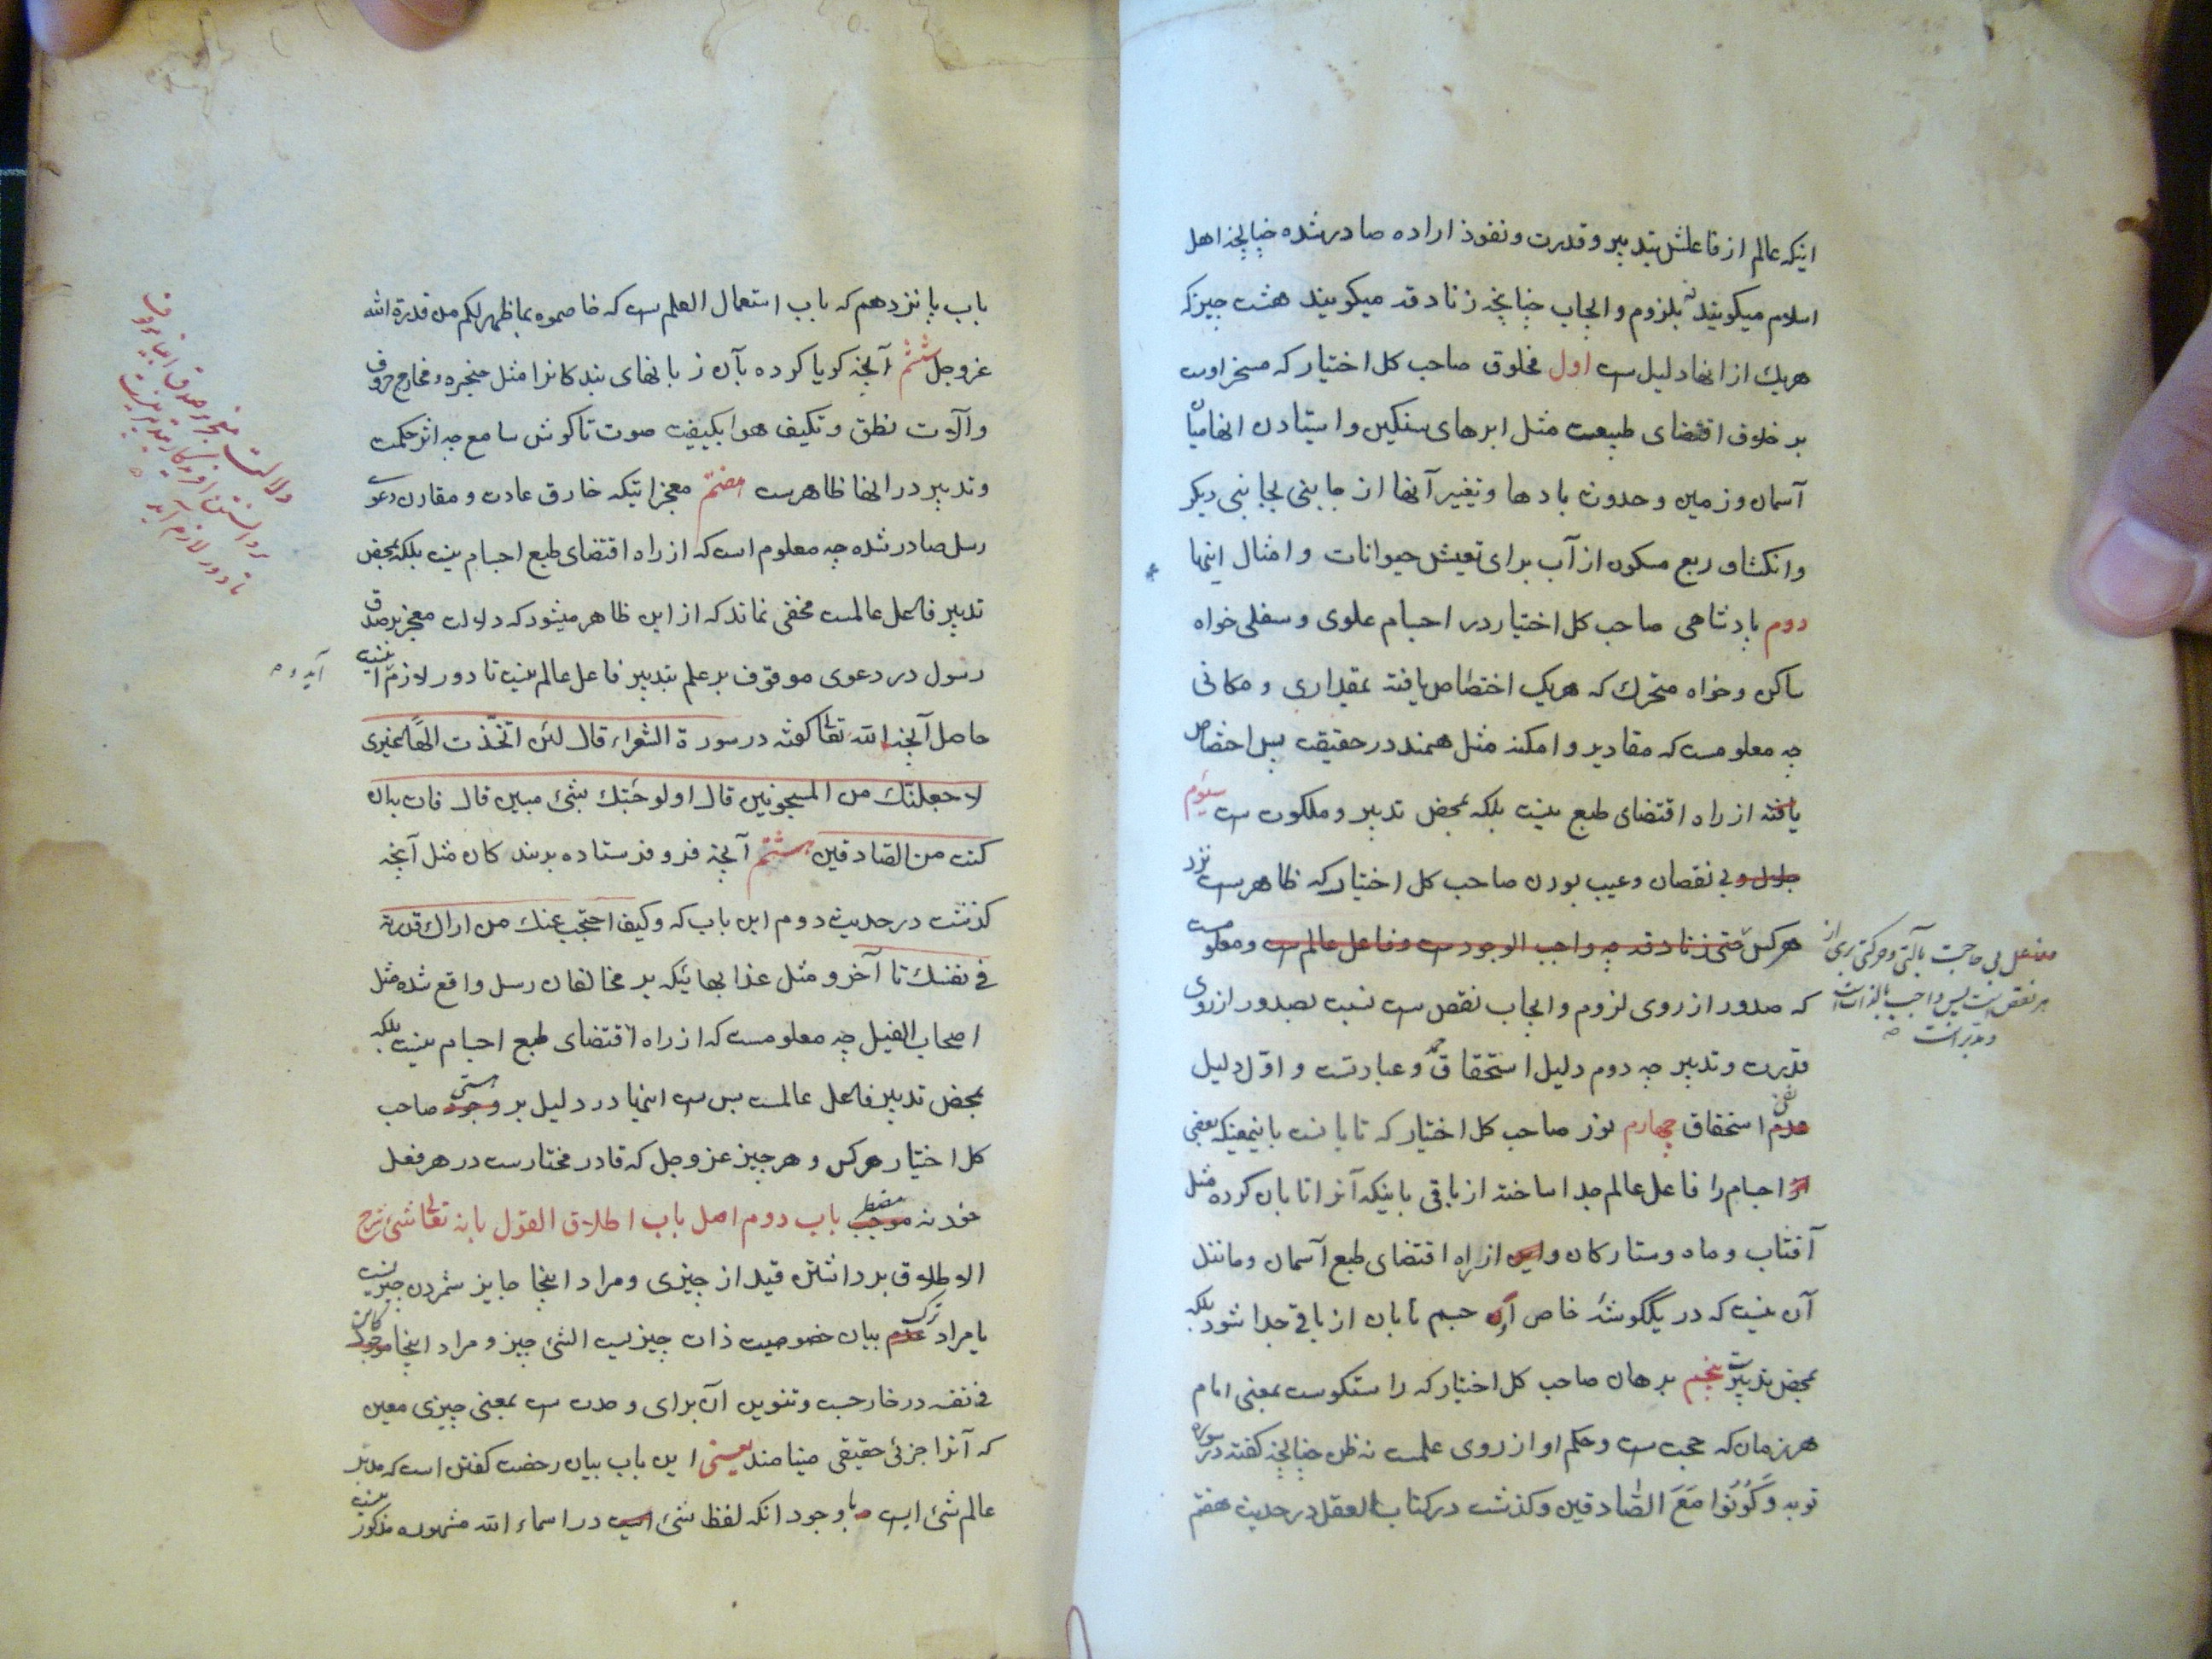 اینکه عالم از فاعلش بتدبیر و قدرت و نفوذ اراده صادر شده چنانچه اهل
اسلام میکویند نه بلزوم و ایجاب چنانچه زنادقه میکویند هشت چیز که
هریك از انها دلیل ست اول مخلوق صاحب کل اختیار که مسخر اوست
بر خلاف اقتضای طبیعت مثل ابرهای سنکین و ایستادن انها میان
آسمان و زمین و حدوث بادها و تغییر آنها از جانبی بجانبی دیکر
و انکشاف ربع مسکون از آب برای تعیش حیوانات و امثال اینها
دوم پادشاهی صاحب کل اختیار در اجسام علوی و سفلی خواه
ساکن و خواه متحرك که هریک اختصاص یافته بمقداری و مکانی
چه معلومست که مقادیر و امکنه مثل همند در حقیقت پس اختصاص
یافته از راه اقتضای طبع نیست بلکه بمحض تدبیر و ملکوت ست سیوم
جلال و بی نقصان و عیب بودن صاحب کل اختیار که ظاهرست نزد
هرکس حتی زنادقه چه واجب الوجودست و فاعل عالم ست و معلومست
که صدور از روی لزوم و ایجاب نقص ست نسبت بصدور از روی
قدرت و تدبیر چه دوم دلیل استحقاق حمد و عبادتست و اول دلیل
عدم نفی استحقاق چهارم نور صاحب کل اختیار که تابانست باینمعنی که بعضی
اجسام را فاعل عالم جدا ساخته از باقی باینکه آنرا تابان کرده مثل
آفتاب و ماه و ستارکان و این از راه اقتضای طبع آسمان و مانند
آن نیست که در یکگوشهٔ خاص آن جسم تابان از باقی جدا شود بلکه
بمحض تدبیرست پنجم برهان صاحب کل اختیار که راستکوست بمعنی امام
هر زمان که حجت ست و حکم او از روی علمست نه ظن چنانچه کفته در سوره
توبه وَكُونُوا مَعَ الصَّادقین و کذشت در کتاب العقل در حدیث هفتم
بی حاجت بآلتی و حرکتی بری از
هر نقص است پس واجب بالذات است
و مدبر است
باب پانزدهم که باب استعمال العلم ست که خاصموه بما ظهر لکم من قدرة الله
عزوجل ششم آنچه کویا کرده بآن زبانهای بندکانرا مثل حنجره و مخارج حروف
و آلات نطق و تکیف هوا بکیفیت صوت تا کوش سامع چه اثر حکمت
و تدبیر در انها ظاهرست هفتم معجزاتیکه خارق عادت و مقارن دعوی
رسل صادر شده چه معلوم است که از راه اقتضای طبع اجسام نیست بلکه بمحض
تدبیر فاعل عالمست مخفی نماند که از این ظاهر میشود که دلالت معجز بر صدق
رسول در دعوی موقوف بر علم بتدبیر فاعل عالم نیست تا دور لازم آید
حاصل آنچه الله تعالی کفته در سورة الشعراء قال لئن اتخذت الهًا غیری
لاجعلنّك من المسجونین قال اولو جئتك بشیٔ مبین قال فات به ان
کنت من الصّادقین هشتم آنچه فرو فرستاده بر بندکان مثل آنچه
کذشت در حدیث دوم این باب که و کیف احتجب عنك من اراك قدرته
فی نفسك تا آخر و مثل عذابهائیکه بر مخالفان رسل واقع شده مثل
اصحاب الفیل چه معلومست که از راه اقتضای طبع اجسام نیست بلکه
بمحض تدبیر فاعل عالمست پس ست اینها در دلیل بر وجود هستی صاحب
کل اختیار هرکس و هر چیز عزوجل که قادر مختارست در هر فعل
خود نه موجب مضطر باب دوم اصل باب اطلاق القول بانه تعالی شیٔ شرح
الاطلاق برداشتن قید از چیزی و مراد اینجا جایز شمردن چیزیست
یا مراد عدم ترک بیان خصوصیت ذات چیزیست الشیٔ چیز و مراد اینجا موجود کائن
فی نفسه در خارجست و تنوین آن برای وحدت ست بمعنی چیزی معین
که آنرا جزئی حقیقی مینامند یعنی این باب بیان رخصت کفتن است که مدبر
عالم شیٔ است با وجود انکه لفظ شیٔ در اسماء الله مشهوره مذکور نیست
دلالت معجز
تا دور لازم آید